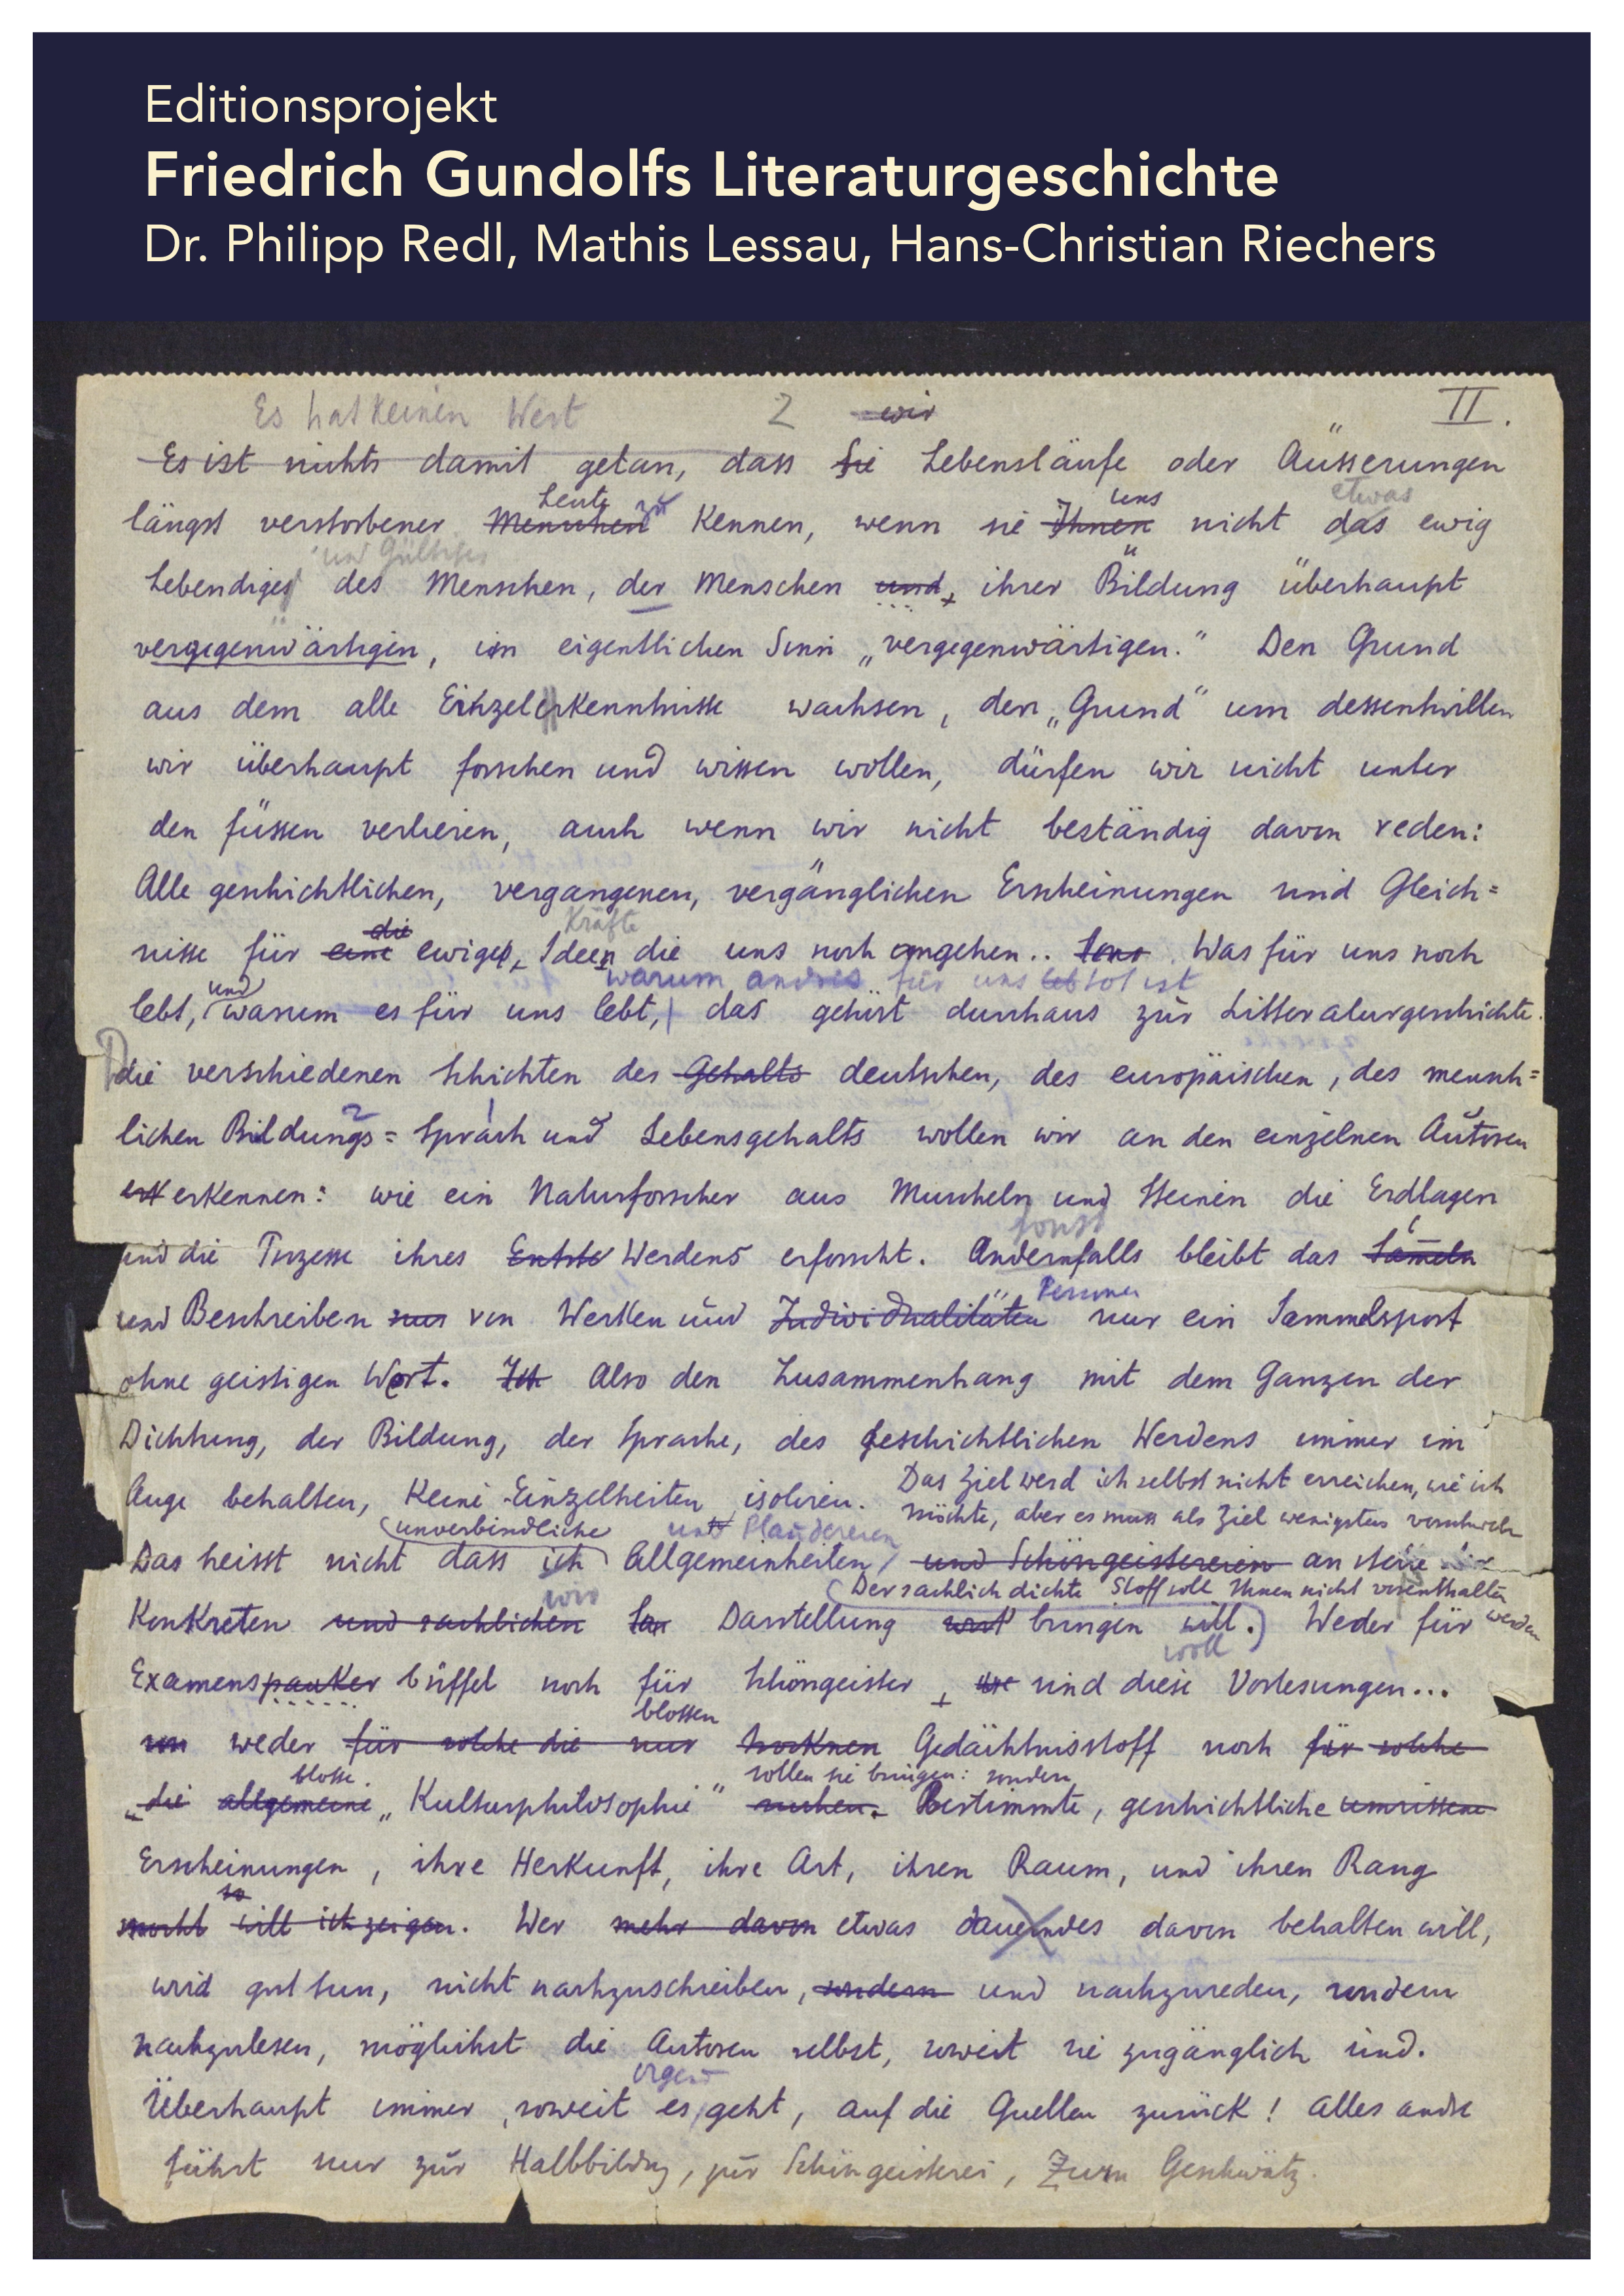 Editionsprojekt
Friedrich Gundolfs Literaturgeschichte
Dr. Philipp Redl, Mathis Lessau, Hans-Christian Riechers
Es hat keinen Wert 2 wir II.
Es ist nichts damit getan, dass Sie Lebensläufe oder Äusserungen
Leute zu uns etwas
längst verstorbener Menschen kennen, wenn sie Ihnen nicht das ewig
und Gültiges
Lebendiges des Menschen, der Menschen und, ihrer Bildung überhaupt
vergegenwärtigen, im eigentlichen Sinn „vergegenwärtigen.“ Den Grund
aus dem alle Einzelerkenntnisse wachsen, den „Grund“ um dessentwillen
wir überhaupt forschen und wissen wollen, dürfen wir nicht unter
den füssen verlieren, auch wenn wir nicht beständig davon reden:
Alle geschichtlichen, vergangenen, vergänglichen Erscheinungen sind Gleich=
die Kräfte
nisse für eine ewige, Ideen die uns noch angehen.. Was für uns noch
und warum andres für uns tot ist
lebt, warum es für uns lebt, das gehört durchaus zur Litteraturgeschichte.
die verschiedenen Schichten des Gehalts deutschen, des europäischen, des mensch=
2 1
lichen Bildungs= Sprach und Lebensgehalts wollen wir an den einzelnen Autoren
erkennen: wie ein Naturforscher aus Muscheln und Steinen die Erdlagen
sonst
und die Prozesse ihres Werdens erforscht. Andernfalls bleibt das Sameln
Personen
und Beschreiben nur von Werken und Individualitäten nur ein Sammelsport
ohne geistigen Wert. Ich Also den Zusammenhang mit dem Ganzen der
Dichtung, der Bildung, der Sprache, des geschichtlichen Werdens immer im
Das Ziel werd ich selbst nicht erreichen, wie ich
Auge behalten, keine Einzelheiten isolieren. möchte, aber es muss als Ziel wenigstens
unverbindliche und Plaudereien
Das heisst nicht dass ich Allgemeinheiten, und Schöngeistereien an stelle
wir Der sachlich dichte Stoff soll Ihnen nicht vorenthalten werden
Konkreten und sachlichen Darstellung bringen will. Weder für
woll
Examenspauker büffel noch für Schöngeister, sind diese Vorlesungen...
blossen
weder für solche die nur trocknen Gedächtnisstoff noch für solche
blosse. sollen sie bringen: sondern
„die allgemeine „Kulturphilosophie“ suchen. Bestimmte, geschichtliche umrissene
Erscheinungen, ihre Herkunft, ihre Art, ihren Raum, und ihren Rang
so
will ich zeigen. Wer mehr davon etwas dauerndes davon behalten will,
wird gut tun, nicht nachzuschreiben, sondern und nachzureden, sondern
nachzulesen, möglichst die Autoren selbst, soweit sie zugänglich sind.
irgend
Überhaupt immer, soweit es geht, auf die Quellen zurück! Alles andre
führt nur zur Halbbildung, zur Schöngeisterei, Zum Geschwätz.